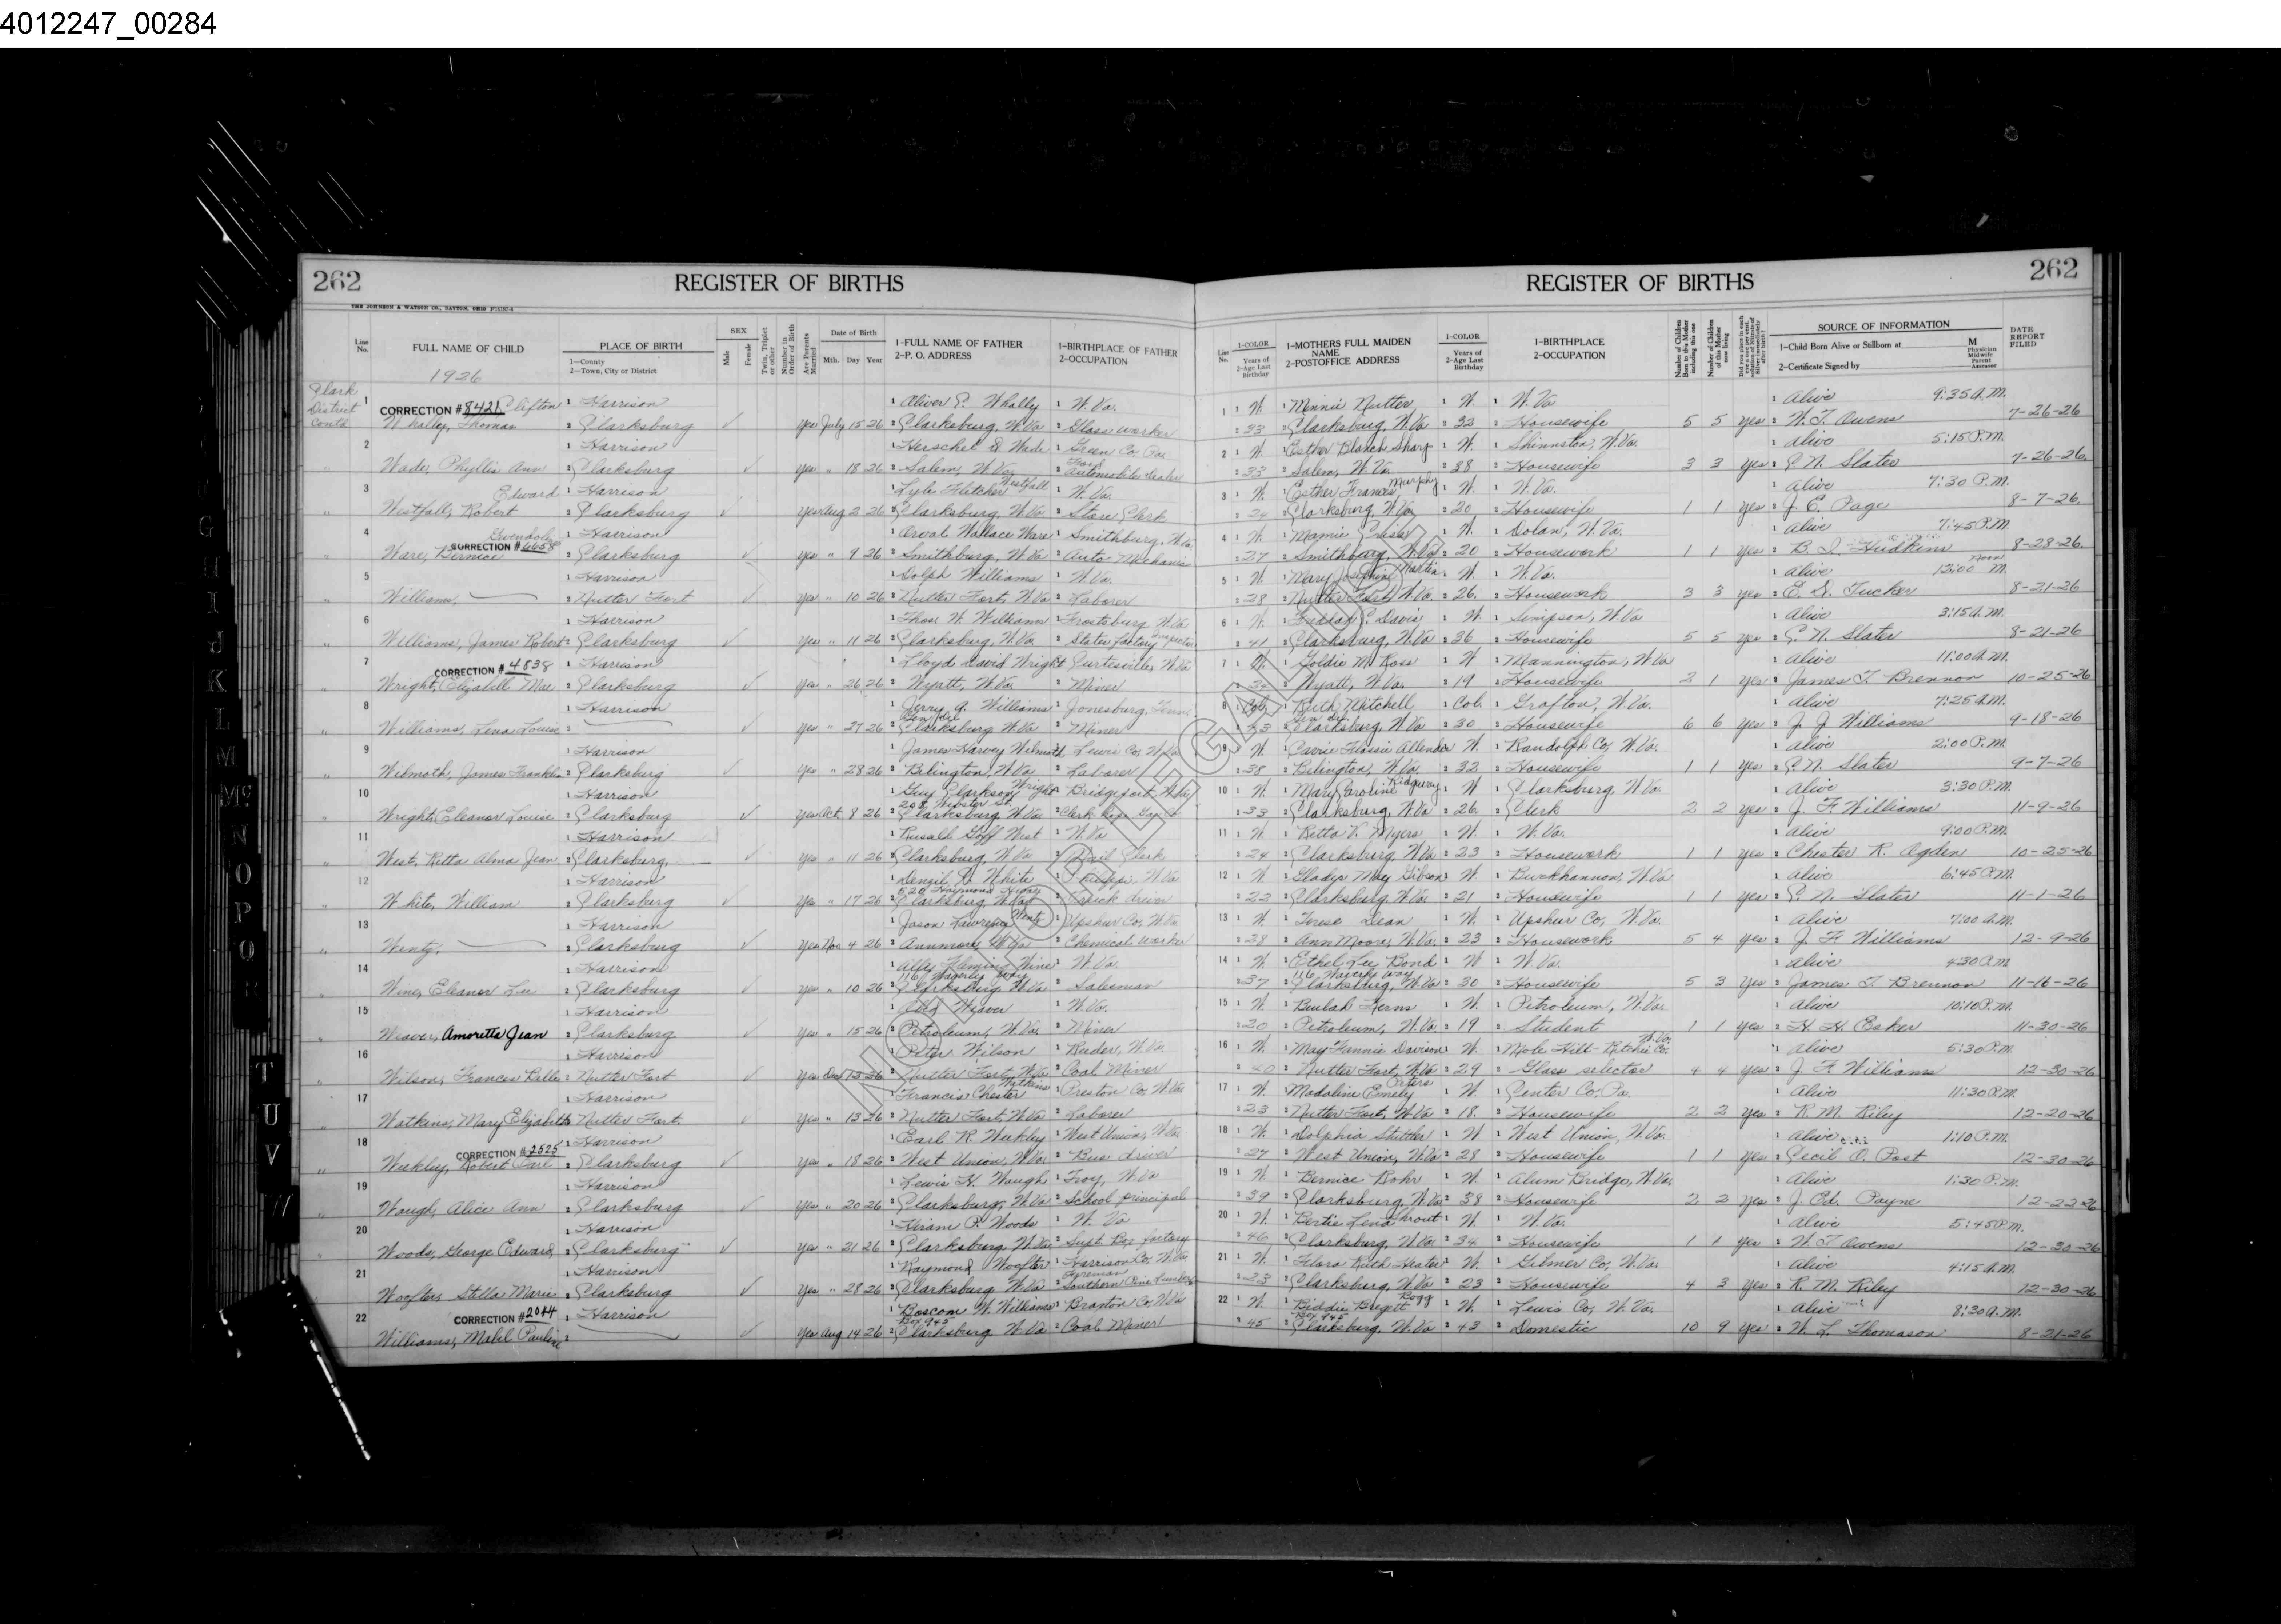 4012247_00284
262 REGISTER OF BIRTHS
REGISTER OF BIRTHS 262
THE JOHNSON & WATSON CO., DAYTON, OHIO
Line No. FULL NAME OF CHILD PLACE OF BIRTH SEX Twin, Triplet or other Number in Order of Birth Are Parents Married Date of Birth 1-FULL NAME OF FATHER 1-BIRTHPLACE OF FATHER
1—County 2—Town, City or District Male Female Mth. Day Year 2-P. O. ADDRESS 2-OCCUPATION
1926
Line No. 1-COLOR Years of 2-Age Last Birthday 1-MOTHERS FULL MAIDEN NAME 2-POSTOFFICE ADDRESS 1-COLOR Years of 2-Age Last Birthday 1-BIRTHPLACE 2-OCCUPATION Number of Children Born to this Mother including this one Number of Children of this Mother now living SOURCE OF INFORMATION DATE REPORT FILED
1-Child Born Alive or Stillborn at M
2-Certificate Signed by Physician Midwife Parent Assessor
Clark District Contd
1 CORRECTION #8421 Clifton 1 Harrison 1 Oliver C. Whally 1 W. Va. 1 1 W. 1 Minnie Nutter 1 W. 1 W. Va 1 Alive 9:35 A.M.
Whalley, Thomas 2 Clarksburg yes July 15 26 2 Clarksburg, W. Va 2 Glass worker 2 33 2 Clarksburg, W. Va 2 32 2 Housewife 5 5 yes 2 W. T. Owens 7-26-26
2 1 Harrison 1 Herschel D. Wade 1 Green Co. Pa 2 1 W. 1 Esther Blanch Sharp 1 W. 1 Shinnston, W. Va. 1 Alive 5:15 P.M.
" Wade, Phyllis Ann 2 Clarksburg yes " 18 26 2 Salem, W. Va. 2 Ford Automobile dealer 2 33 2 Salem, W. Va. 2 38 2 Housewife 3 3 yes 2 C. N. Slater 7-26-26
3 Edward 1 Harrison 1 Lyle Fletcher Westfall 1 W. Va. 3 1 W. 1 Esther Frances Murphy 1 W. 1 W. Va. 1 Alive 7:30 P.M.
" Westfall, Robert 2 Clarksburg yes Aug 2 26 2 Clarksburg, W. Va 2 Store Clerk 2 24 2 Clarksburg, W. Va 2 20 2 Housewife 1 1 yes 2 J. E. Page 8-7-26
4 Gwendolyn CORRECTION #6658 1 Harrison 1 Orval Wallace Ware 1 Smithburg, W. Va 4 1 W. 1 Mamie 1 W. 1 Dolan, W. Va. 1 Alive 7:45 P.M.
" Ware, Bernice 2 Clarksburg yes " 9 26 2 Smithburg, W. Va 2 Auto Mechanic 2 27 2 Smithburg, W. Va 2 20 2 Housework 1 1 yes 2 B. I. Hudkins 8-28-26
5 1 Harrison 1 Dolph Williams 1 W. Va. 5 1 W. 1 Mary Josephine Martin 1 W. 1 W. Va. 1 Alive 12:00 Noon M.
" Williams, 2 Nutter Fort yes " 10 26 2 Nutter Fort, W. Va 2 Laborer 2 28 2 Nutter Fort W. Va. 2 26 2 Housework 3 3 yes 2 E. D. Tucker 8-21-26
6 1 Harrison 1 Thos. W. Williams 1 Frostburg, W. Va 6 1 W. 1 C. Davis 1 W. 1 Simpson, W. Va 1 Alive 3:15 A.M.
" Williams, James Robert 2 Clarksburg yes " 11 26 2 Clarksburg, W. Va. 2 States factory Inspector 2 41 2 Clarksburg, W. Va 2 36 2 Housewife 5 5 yes 2 C. N. Slater 8-21-26
7 CORRECTION #4838 1 Harrison 1 Lloyd David Wright 1 Curtisville, W. Va 7 1 W. 1 Goldie M. Ross 1 W 1 Mannington, W. Va 1 Alive 11:00 A.M.
Wright, Elizabeth Mae 2 Clarksburg yes " 26 26 2 Wyatt, W. Va. 2 Miner 2 24 2 Wyatt, W. Va. 2 19 2 Housewife 2 1 yes 2 James T. Brennon 10-25-26
8 1 Harrison 1 Jerry A. Williams 1 Jonesburg, Tenn 8 1 Col. 1 Ruth Mitchell 1 Col. 1 Grafton, W. Va. 1 Alive 7:25 A.M.
" Williams, Lena Louise 2 yes " 27 26 2 Clarksburg W. Va 2 Miner 2 2 Clarksburg, W. Va 2 30 2 Housewife 6 6 yes 2 J. J. Williams 9-18-26
9 1 Harrison 1 James Harvey Wilmoth 1 Lewis Co, W. Va 9 1 W. 1 Carrie Flossie Allender 1 W. 1 Randolph Co, W. Va. 1 Alive 2:00 P.M.
" Wilmoth, James Franklin 2 Clarksburg yes " 28 26 2 Belington, W. Va 2 Laborer 2 38 2 Belington, W. Va. 2 32 2 Housewife 1 1 yes 2 C. N. Slater 9-7-26
10 1 Harrison 1 Guy Clarkson Wright 1 Bridgeport, W. Va 10 1 W. 1 Mary Caroline Ridgway 1 W 1 Clarksburg, W. Va 1 Alive 3:30 P.M.
" Wright, Eleanor Louise 2 Clarksburg yes Oct. 8 26 2 208 Webster St. Clarksburg, W. Va 2 Clerk 2 33 2 Clarksburg, W. Va 2 26 2 Clerk 2 2 yes 2 J. F. Williams 11-9-26
11 1 Harrison 1 Russell Goff West 1 W. Va 11 1 W. 1 Retta V. Myers 1 W. 1 W. Va. 1 Alive 9:00 P.M.
" West, Retta Alma Jean 2 Clarksburg, yes " 11 26 2 Clarksburg, W. Va 2 Mail Clerk 2 24 2 Clarksburg, W. Va 2 23 2 Housework 1 1 yes 2 Chester R. Ogden 10-25-26
12 1 Harrison 1 Denzil D. White 1 Philippi, W. Va 12 1 W. 1 Gladys May Gibson 1 W 1 Buckhannon, W. Va 1 Alive 6:45 P.M.
" White, William 2 Clarksburg yes " 17 26 2 520 Haymond Highway Clarksburg, W. Va 2 Truck driver 2 22 2 Clarksburg W. Va 2 21 2 Housewife 1 1 yes 2 C. N. Slater 11-1-26
13 1 Harrison 1 Jason Lawrence Wentz 1 Upshur Co, W. Va 13 1 W. 1 Dean 1 W. 1 Upshur Co, W. Va. 1 Alive 7:00 A.M.
" Wentz, 2 Clarksburg yes Nov 4 26 2 Annmore, W. Va 2 Chemical worker 2 28 2 Ann Moore, W. Va. 2 23 2 Housework 5 4 yes 2 J. F. Williams 12-9-26
14 1 Harrison 1 Fleming Wine 1 W. Va. 14 1 W. 1 Ethel Lee Bond 1 W 1 W. Va. 1 Alive 4:30 A.M
" Wine, Eleanor Lee 2 Clarksburg yes " 10 26 2 116 Waverly Way Clarksburg W. Va 2 Salesman 2 37 2 116 Waverly Way Clarksburg, W. Va 2 30 2 Housewife 5 3 yes 2 James T. Brennon 11-16-26
15 1 Harrison 1 Weaver 1 W. Va. 15 1 W. 1 Beulah Ferns 1 W. 1 Petroleum, W. Va. 1 Alive 10:10 P.M.
" Weaver, Amoretta Jean 2 Clarksburg yes " 15 26 2 Petroleum, W. Va. 2 Miner 2 20 2 Petroleum, W. Va. 2 19 2 Student 1 1 yes 2 H. H. Esker 11-30-26
16 1 Harrison 1 Peter Wilson 1 Reeder, W. Va 16 1 W. 1 May Fannie Davison 1 W. 1 Mole Hill-Ritchie Co. W. Va. 1 Alive 5:30 P.M.
" Wilson, Frances Billie 2 Nutter Fort yes Dec 13 26 2 Nutter Fort, W. Va 2 Coal Miner 2 40 2 Nutter Fort, W. Va 2 29 2 Glass selector 4 4 yes 2 J. F. Williams 12-30-26
17 1 Harrison 1 Francis Chester Watkins 1 Preston Co, W. Va 17 1 W. 1 Madaline Emily Peters 1 W. 1 Center Co, Pa. 1 Alive 11:30 P.M.
" Watkins, Mary Elizabeth 2 Nutter Fort, yes " 13 26 2 Nutter Fort, W. Va 2 Laborer 2 23 2 Nutter Fort, W. Va 2 18 2 Housewife 2 2 yes 2 R. M. Riley 12-20-26
18 CORRECTION #2525 1 Harrison 1 Earl R. Weekley 1 West Union, W. Va 18 1 W. 1 Dolphia Stuttler 1 W 1 West Union, W. Va. 1 Alive 1:10 P.M.
" Weekley, Robert Earl 2 Clarksburg yes " 18 26 2 West Union, W. Va 2 Bus driver 2 27 2 West Union, W. Va 2 28 2 Housewife 1 1 yes 2 Cecil O. Post 12-30-26
19 1 Harrison 1 Lewis H. Waugh 1 Troy, W. Va 19 1 W 1 Bernice Rohr 1 W 1 Alum Bridge, W. Va. 1 Alive 1:30 P.M.
" Waugh, Alice Ann 2 Clarksburg yes " 20 26 2 Clarksburg, W. Va 2 School principal 2 39 2 Clarksburg, W. Va 2 38 2 Housewife 2 2 yes 2 J. Ed. Payne 12-22-26
20 1 Harrison 1 Hiram P. Woods 1 W. Va 20 1 W. 1 Bertie Lena 1 W. 1 W. Va. 1 Alive 5:45 P.M.
" Woods, George Edward 2 Clarksburg yes " 21 26 2 Clarksburg W. Va 2 Supt. Box factory 2 46 2 Clarksburg, W. Va 2 34 2 Housewife 1 1 yes 2 W. T. Owens 12-30-26
21 1 Harrison 1 Raymond Woofter 1 Harrison Co, W. Va 21 1 W. 1 Flora Ruth Heater 1 W. 1 Gilmer Co, W. Va. 1 Alive 4:15 A.M.
Woofter, Stella Marie 2 Clarksburg yes " 28 26 2 Clarksburg W. Va 2 Fireman Southern Pine Lumber 2 23 2 Clarksburg, W. Va 2 23 2 Housewife 4 3 yes 2 R. M. Riley 12-30-26
22 CORRECTION #2044 1 Harrison 1 Boscom W. Williams 1 Braxton Co, W. Va 22 1 W. 1 Biddie Bogg 1 W. 1 Lewis Co, W. Va. 1 Alive 8:30 A.M.
Williams, Mabel Pauline 2 yes Aug 14 26 2 Box 945 Clarksburg W. Va 2 Coal Miner 2 45 2 Box 945 Clarksburg, W. Va 2 43 2 Domestic 10 9 yes 2 W. L. Thomason 8-21-26
G
H
I
J
K
L
M
Mc
N
O
P
Q
R
T
U
V
W